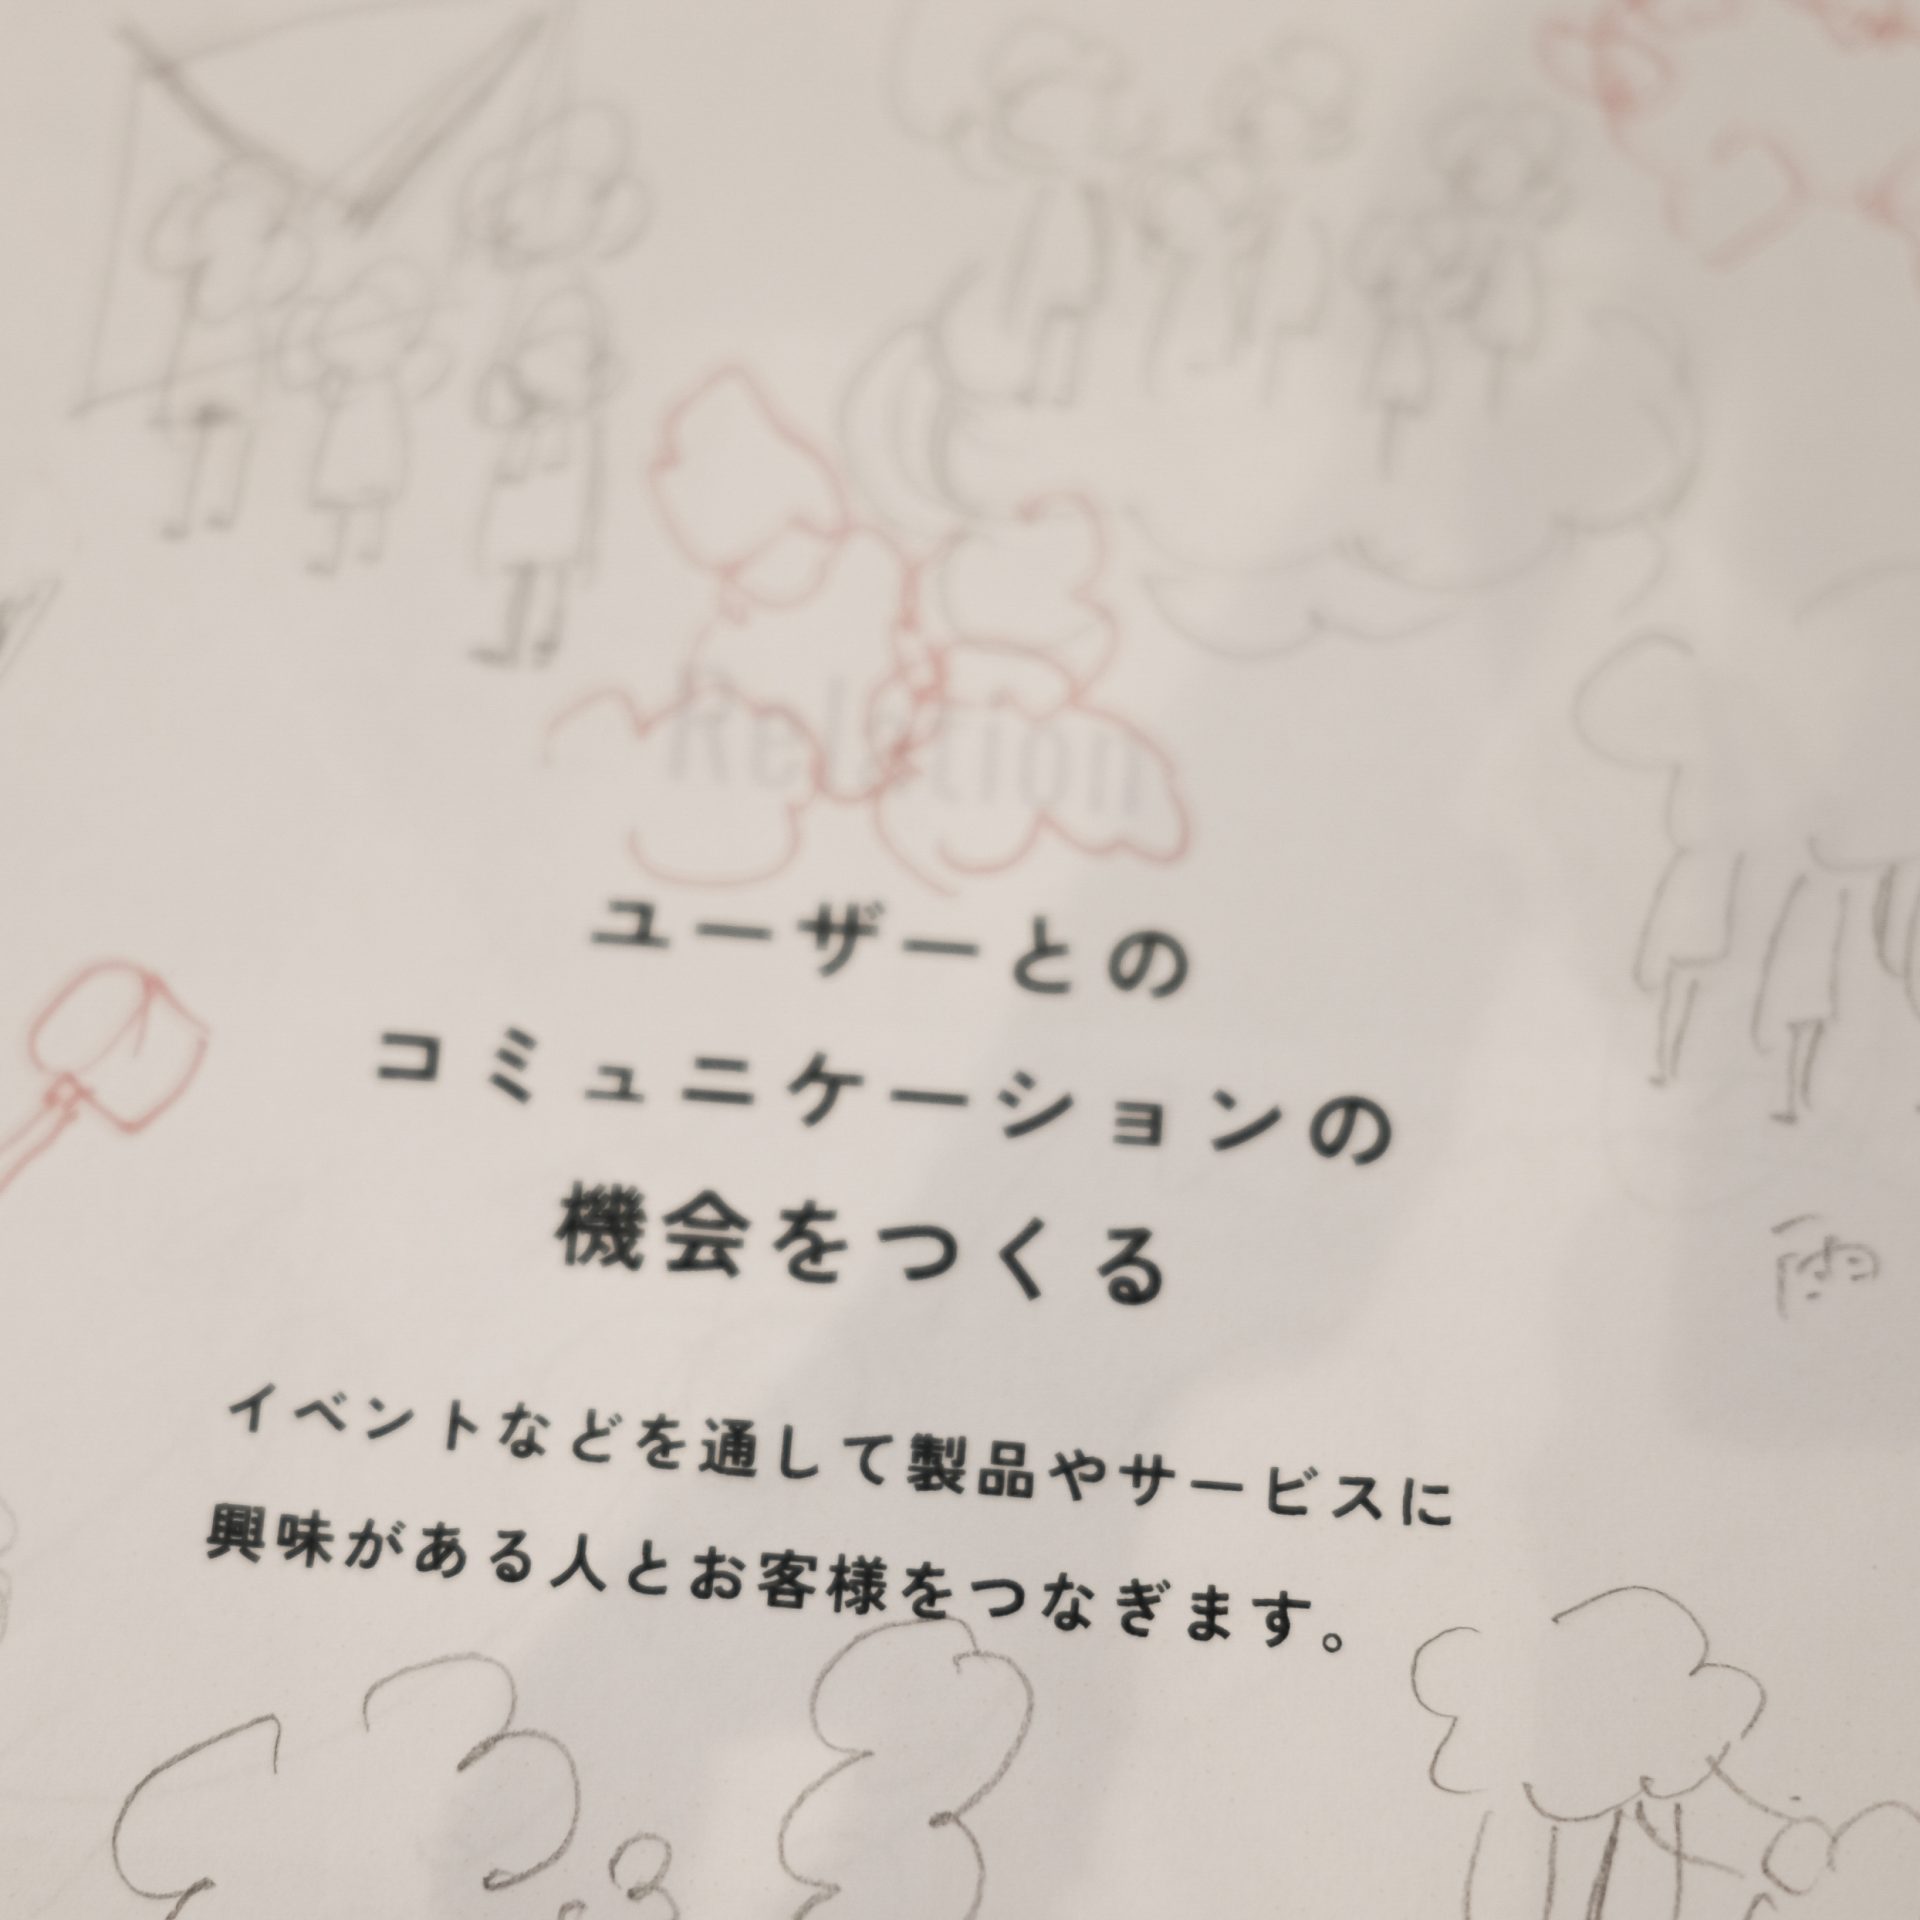 Relation
ユーザーとの
コミュニケーションの
機会をつくる
イベントなどを通して製品やサービスに
興味がある人とお客様をつなぎます。